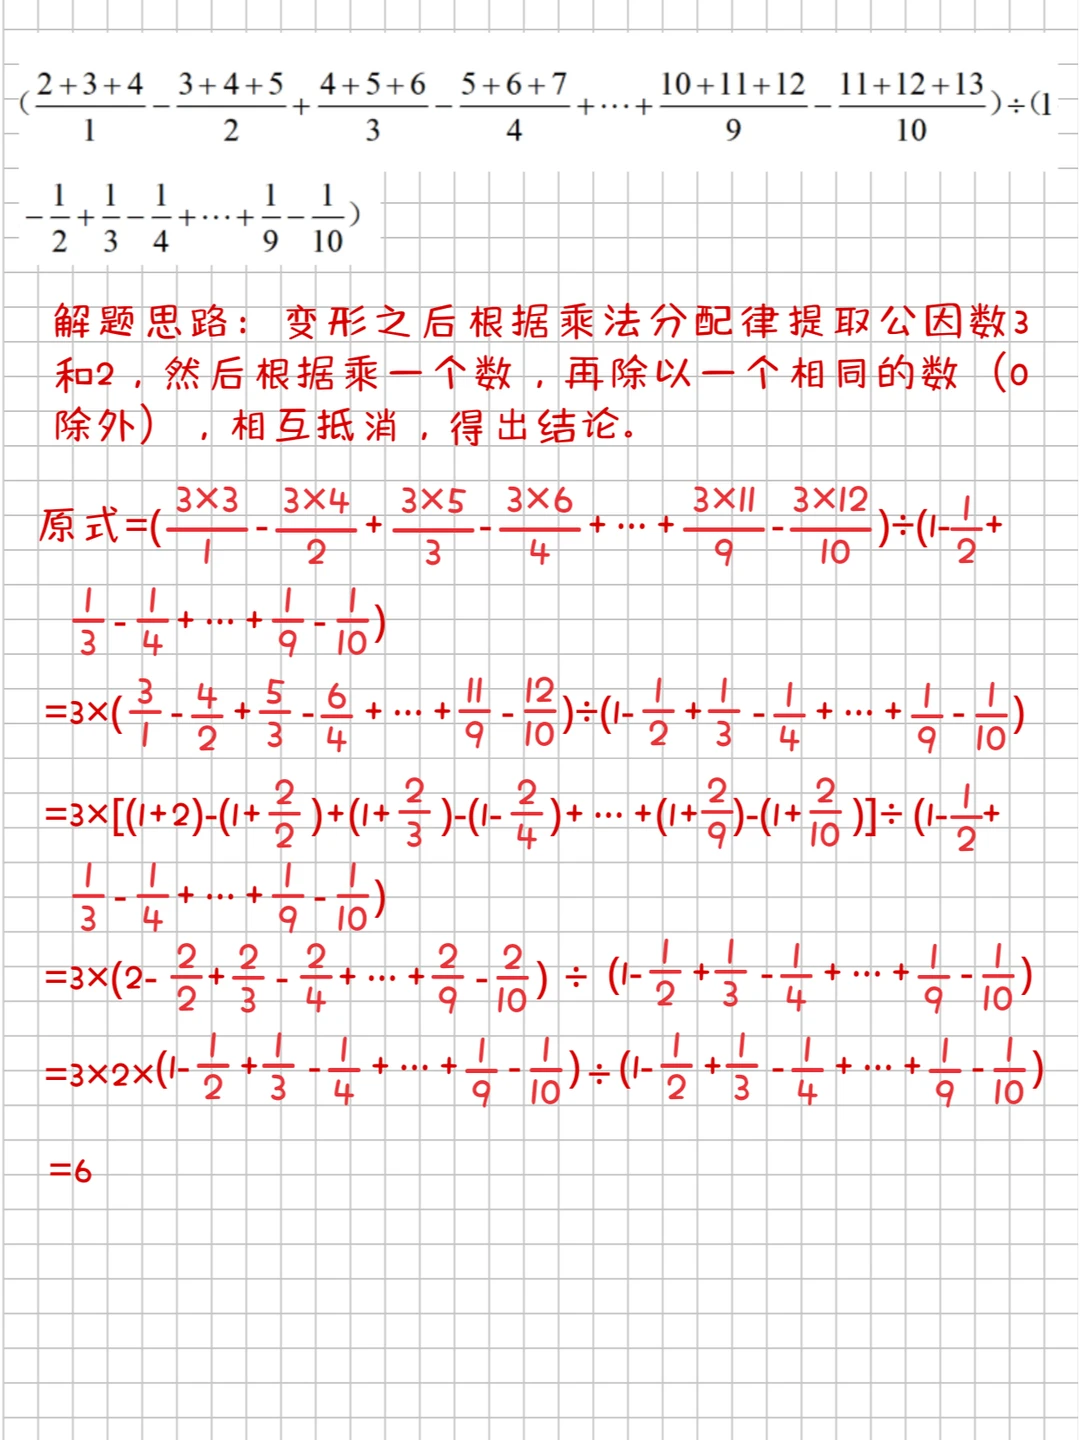 (\frac{2+3+4}{1}-\frac{3+4+5}{2}+\frac{4+5+6}{3}-\frac{5+6+7}{4}+…+\frac{10+11+12}{9}-\frac{11+12+13}{10})÷(1
-\frac{1}{2}+\frac{1}{3}-\frac{1}{4}+…+\frac{1}{9}-\frac{1}{10})
解题思路：变形之后根据乘法分配律提取公因数3
和2，然后根据乘一个数，再除以一个相同的数（0
除外），相互抵消，得出结论。
原式=(\frac{3×3}{1}-\frac{3×4}{2}+\frac{3×5}{3}-\frac{3×6}{4}+…+\frac{3×11}{9}-\frac{3×12}{10})÷(1-\frac{1}{2}+
\frac{1}{3}-\frac{1}{4}+…+\frac{1}{9}-\frac{1}{10})
=3×(\frac{3}{1}-\frac{4}{2}+\frac{5}{3}-\frac{6}{4}+…+\frac{11}{9}-\frac{12}{10})÷(1-\frac{1}{2}+\frac{1}{3}-\frac{1}{4}+…+\frac{1}{9}-\frac{1}{10})
=3×[(1+2)-(1+\frac{2}{2})+(1+\frac{2}{3})-(1-\frac{2}{4})+…+(1+\frac{2}{9})-(1+\frac{2}{10})]÷(1-\frac{1}{2}+
\frac{1}{3}-\frac{1}{4}+…+\frac{1}{9}-\frac{1}{10})
=3×(2-\frac{2}{2}+\frac{2}{3}-\frac{2}{4}+…+\frac{2}{9}-\frac{2}{10})÷(1-\frac{1}{2}+\frac{1}{3}-\frac{1}{4}+…+\frac{1}{9}-\frac{1}{10})
=3×2×(1-\frac{1}{2}+\frac{1}{3}-\frac{1}{4}+…+\frac{1}{9}-\frac{1}{10})÷(1-\frac{1}{2}+\frac{1}{3}-\frac{1}{4}+…+\frac{1}{9}-\frac{1}{10})
=6